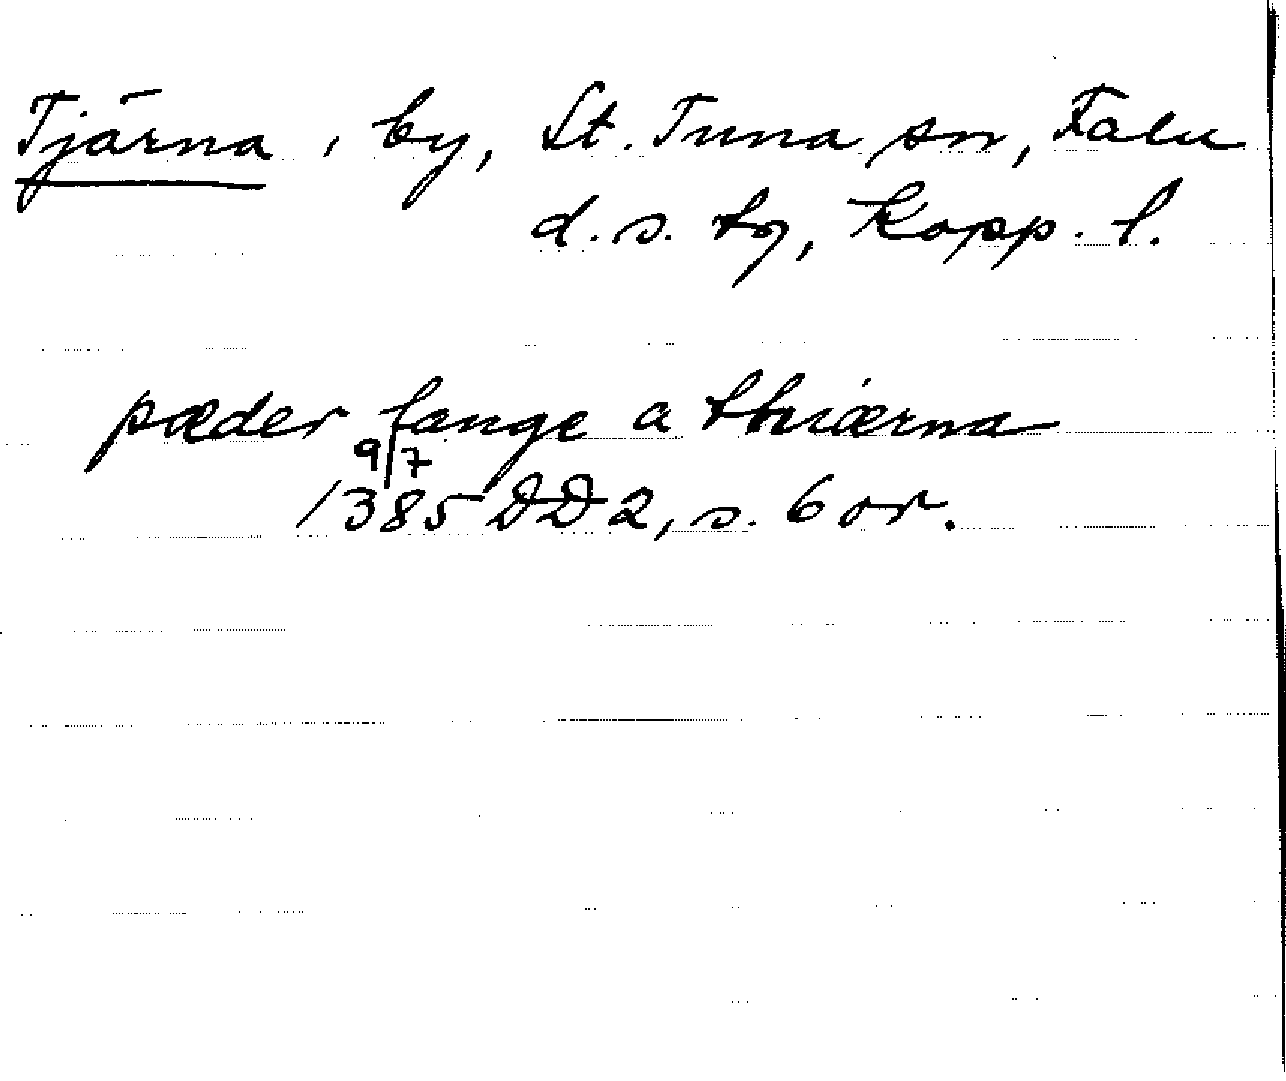 Tjärna, by, St. Tuna sn, Falu
d. s. tg, Kopp. l.
pæder lange a thiærna
9/7
1385 DD 2, s. 6 or.